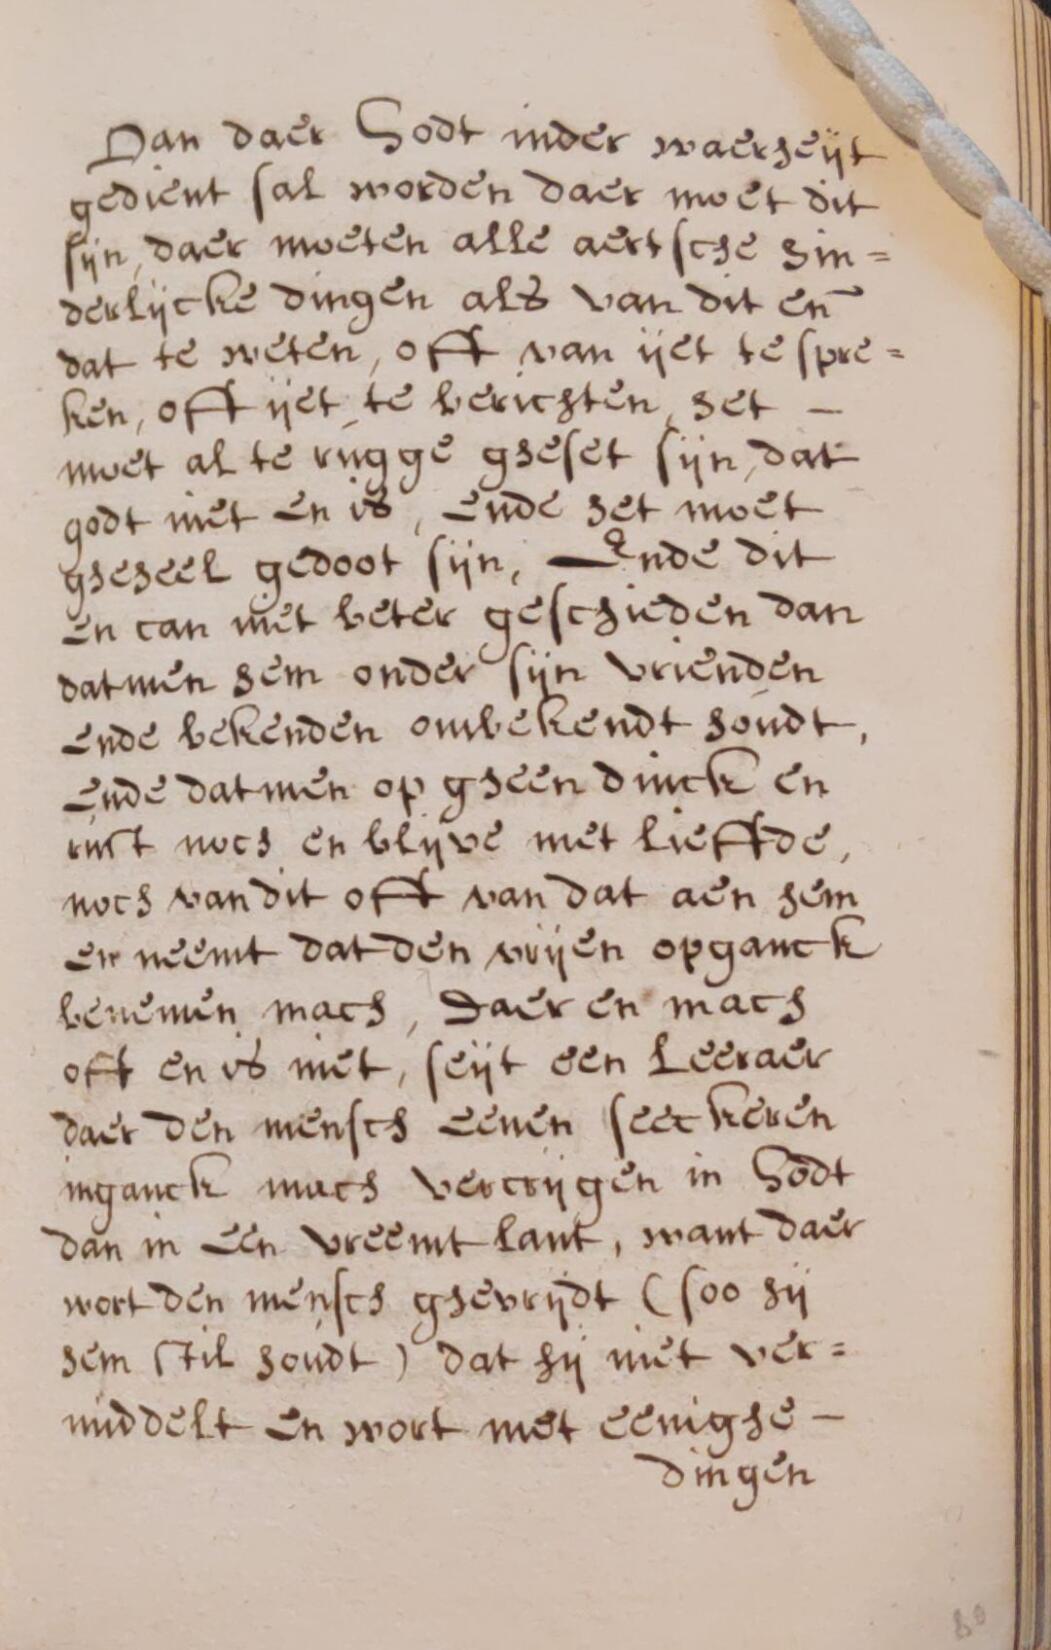 Dan daer Godt inder waerheijt
gedient sal worden daer moet dit
sijn, daer moeten alle aertsche hin=
derlijcke dingen als van dit en̄
dat te weten, oft van ijet te spre=
ken, oft ijet te berichten, het –
moet al te rugge gheset sijn, dat
godt niet en is, ende het moet
gheheel gedoot sijn, Ende dit
en can niet beter geschieden dan
datmen hem onder sijn vrienden
ende bekenden ombekendt houdt,
ende datmen op gheen dinck en
rust noch en blijve met lieffde,
noch van dit oft van dat aen hem
en neemt dat den vrijen opganck
benemen mach, Daer en mach
oft en is niet, seijt een Leeraer
daer den mensch eenen seeckeren
inganck mach vercrijgen in Godt
dan in een vreemt lant, want daer
wort den mensch ghevrijdt (soo hij
hem stil houdt) dat hij niet ver=
middelt en wort met eenighe –
dingen
80